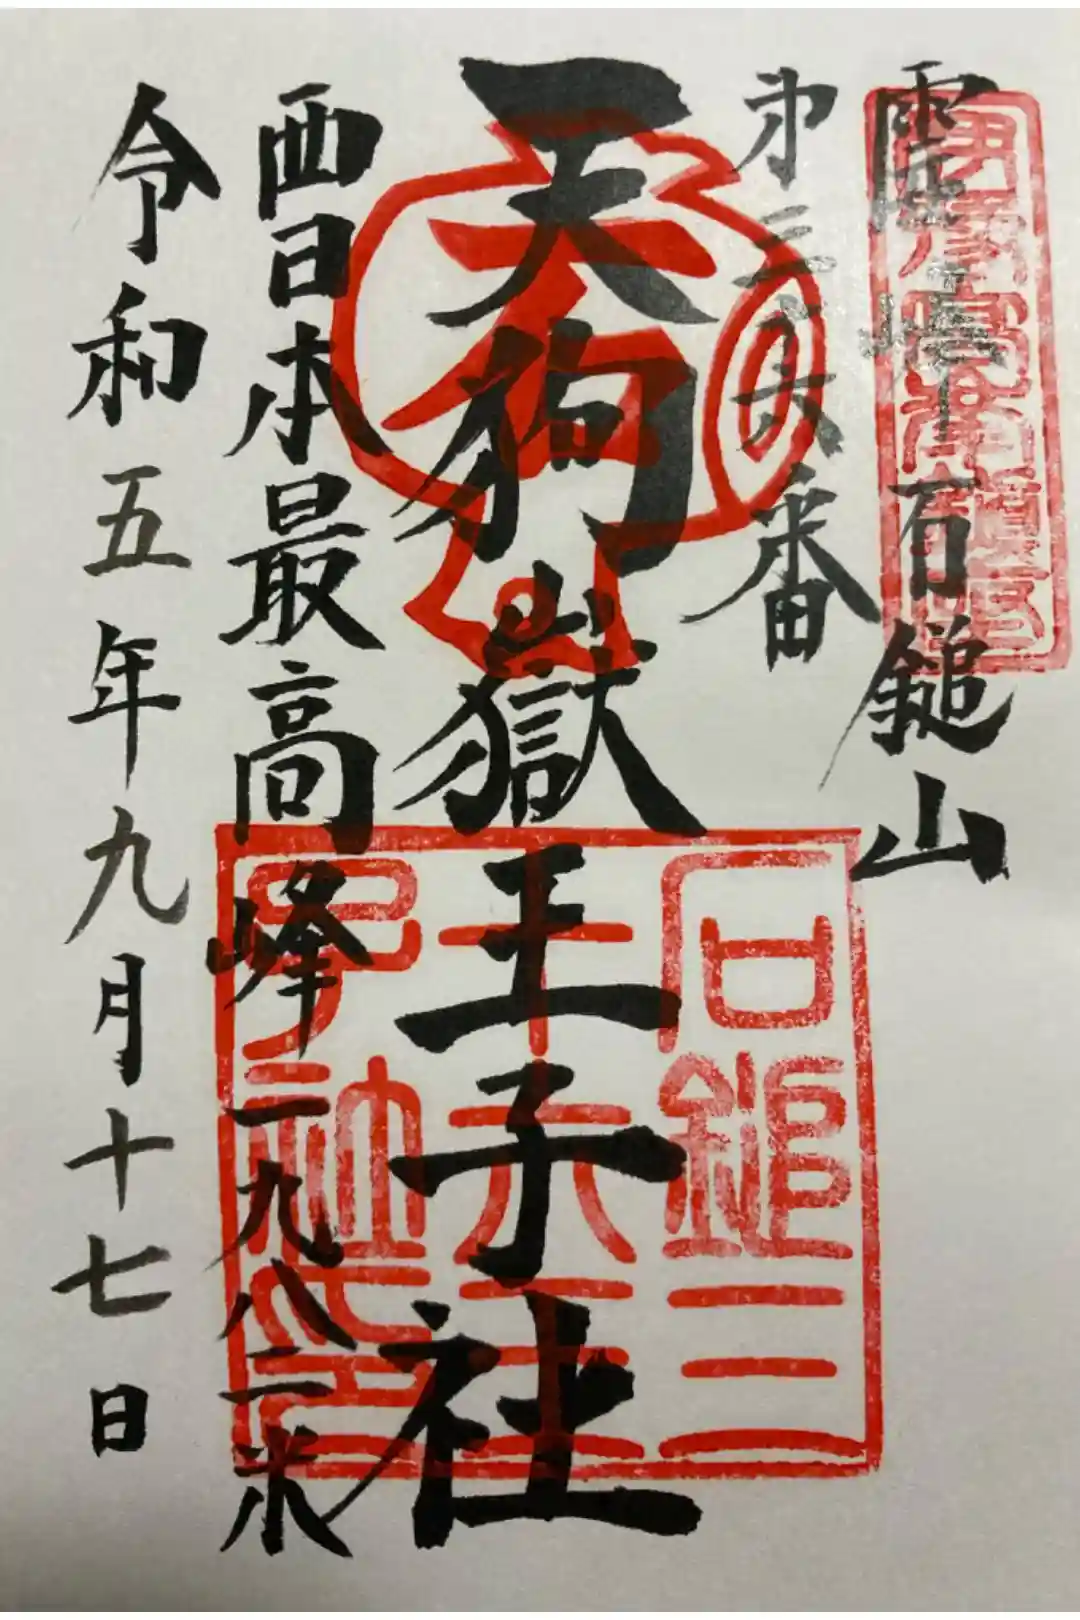 霊峰 石鎚山
第三十六番
天狗嶽王子社
西日本最高峰一九八二米
令和五年九月十七日
石鎚三
十六王
子社之印